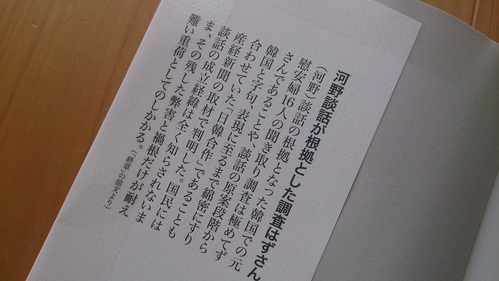 河野談話が根拠とした調査はずさん
(河野)談話の根拠となった韓国での元
慰安婦16人の聞き取り調査は極めてず
さんであることや、談話の原案段階から
韓国と字句、表現に至るまで綿密にすり
合わせていた「日韓合作」であることも
産経新聞の取材で判明した。国民には
談話の成立経緯は全く知らされないま
ま、その残した弊害と禍根だけが耐え
難い重荷としてのしかかる。
(「終章」の前文より)